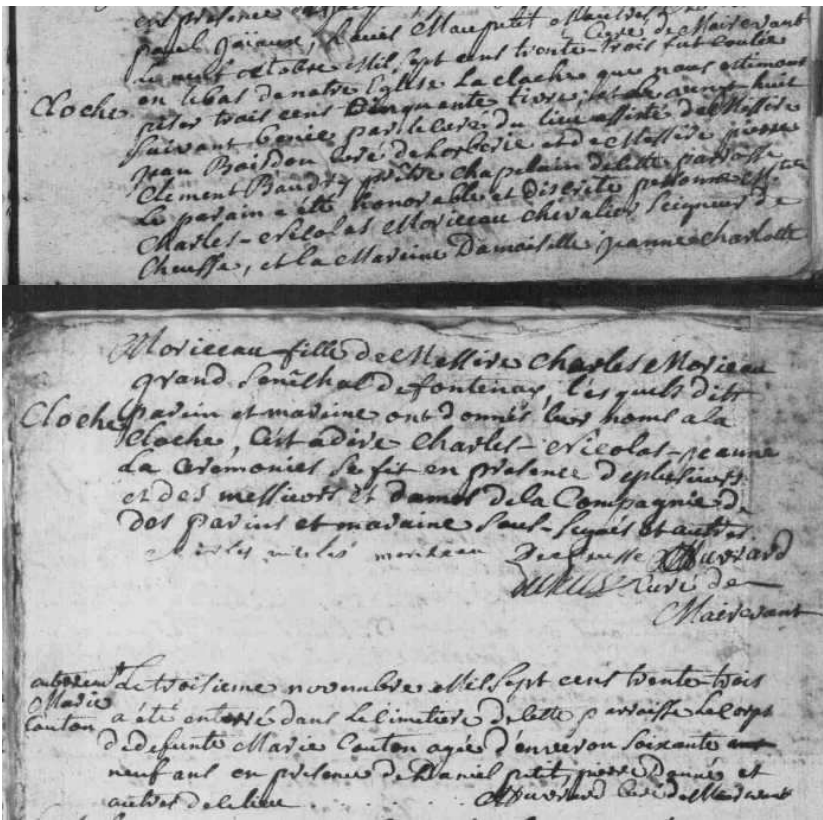 en presence
paul jaiaux, Louis Maupetit et autres
Curé de Mairevant
Le neuf octobre Mil sept cens trente-trois fut coulée
en le bas de notre Eglise La cloche que nous estimons
peser trois cens Cinquante livre, et Le vingt huit
Cloche
suivant benie par le curé du lieu assisté de Messire
jean Baisdon curé de horberie et de Messire pierre
Clement Baudry prêtre chapelain de cette parroisse
Le parain a été honorable et discrete personne Mre
Charles-Nicolas Moriceau chevalier Seigneur de
Cheusse, et la Maraine Damoiselle jeanne charlotte
Moriceau fille de Messire Charles Moriceau
grand Senéchal de fontenay, lesquels dits
Cloche
parain et maraine ont donnés leur noms a la
cloche, C'est a dire Charles-Nicolas-jeanne
La ceremonies se fit en presence de plusieurs
et des messieurs et dames de la Compagnie de
des parins et maraine sous-signés et autres
charles nicolas moriceau De cheusse Huvrard
Curé de
Mairevant
enterremt
Marie
Couton
Le troisieme novembre Mil sept cens trente-trois
a été enterré dans Le cimetiere de cette parroisse Le corps
de defunte Marie Couton agée d'environ soixante
neuf ans en presence de Daniel petit, pierre Donné et
autres de ce lieu Huvrard Curé de Mairevant